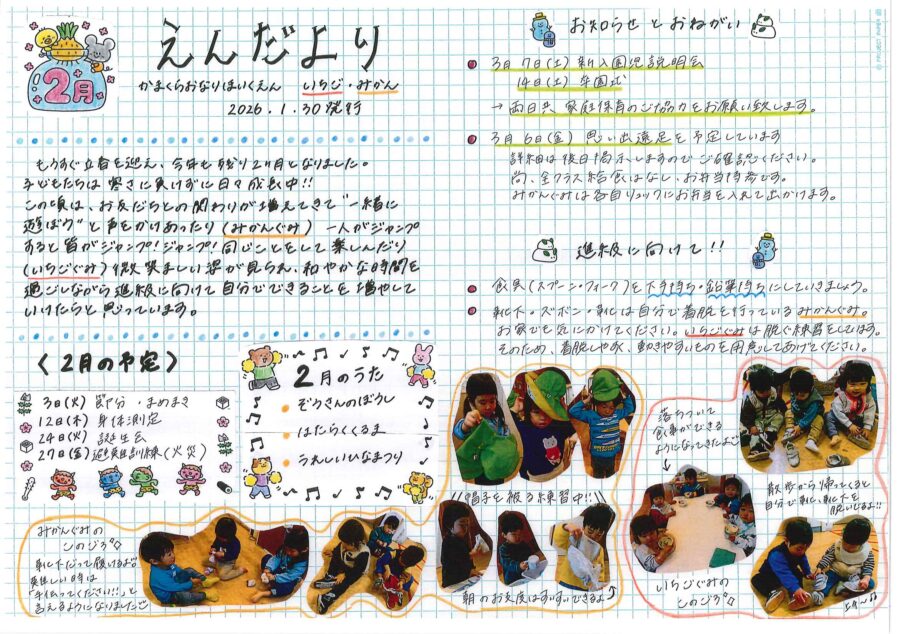 2月
えんだより
かまくらおなりほいくえん いちご・みかん
2026.1.30発行
もうすぐ立春を迎え、今年も残り2ヶ月となりました。
子どもたちは寒さに負けずに日々成長中!!
この頃は、お友だちとの関わりが増えてきて"一緒に
遊ぼう"と声をかけあったり(みかんぐみ) 一人がジャンプ
すると皆がジャンプ!ジャンプ!同じことをして楽しんだり
(いちごぐみ)微笑ましい姿が見られ、和やかな時間を
過ごしながら進級に向けて自分でできることを増やして
いけたらと思っています。
〈2月の予定〉
3日(火) 節分・まめまき
12日(木) 身体測定
24日(火) 誕生会
27日(金)避難訓練(火災)
2月のうた
ぞうさんのぼうし
はたらくくるま
うれしいひなまつり
お知らせとおねがい
3月7日(土)新入園児説明会
14日(土)卒園式
→両日共 家庭保育のご協力をお願い致します。
3月6日(金)思い出遠足を予定しています
詳細は後日掲示しますのでご確認ください。
尚、全クラス給食はなし、お弁当持参です。
みかんぐみは各自リュックにお弁当を入れて出かけます。
進級に向けて!!
食具(スプーン・フォーク)を下手持ち・鉛筆持ちにしていきましょう。
靴下・ズボン・靴は自分で着脱を行っているみかんぐみ。
お家でも気にかけてください。いちごぐみは脱ぐ練習をしています。
そのため、着脱しやすく、動きやすいものを用意してあげてください。
みかんぐみの
このごろ
靴下だって履けるよ
難しい時は
「手伝ってください!!」と
言えるようになりました
帽子を被る練習中!!
朝のお支度はすいすいできるよ
落ちついて
食事ができる
ようになってきたよ
いちごぐみの
このごろ
散歩から帰ってくると
自分で靴、靴下を
脱いでるよ!!